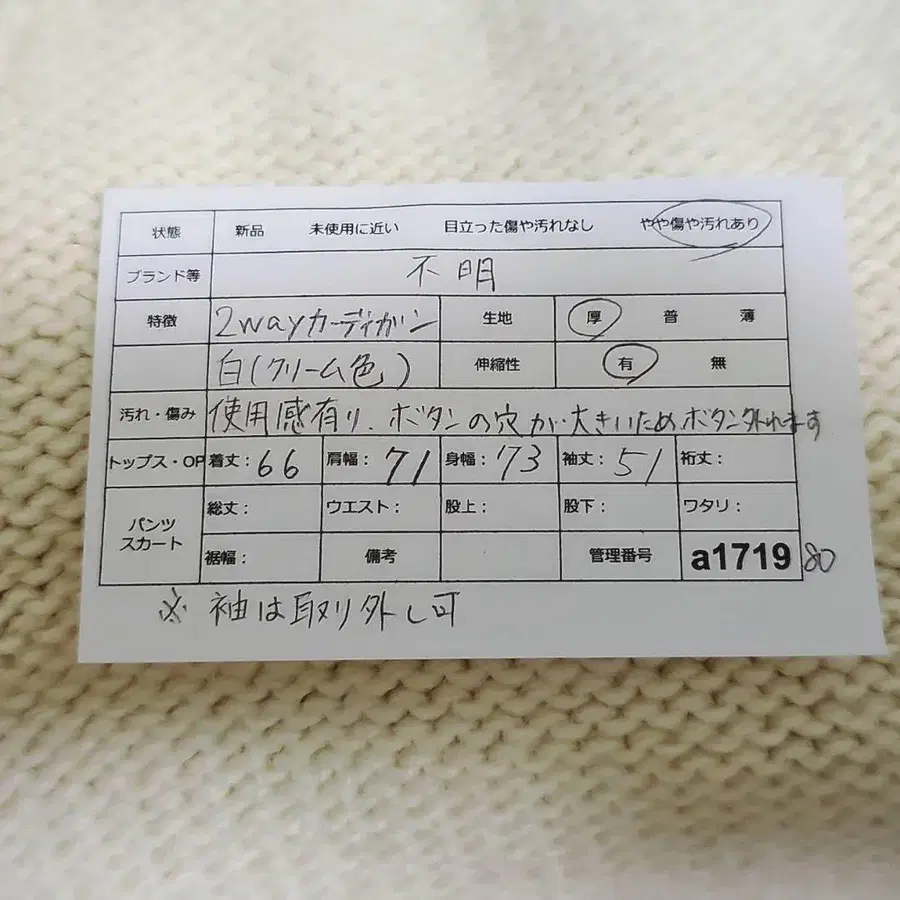 状態 新品 未使用に近い 目立った傷や汚れなし やや傷や汚れあり
ブランド等 不明
特徴 2wayカーディガン 生地 厚 普 薄
白(クリーム色) 伸縮性 有 無
汚れ・傷み 使用感有り、ボタンの穴が大きいためボタン外れます
トップス・OP 着丈：66 肩幅：71 身幅：73 袖丈：51 裄丈：
パンツ スカート 総丈： ウエスト： 股上： 股下： ワタリ：
裾幅： 備考 管理番号 a1719 80
※ 袖は取り外し可